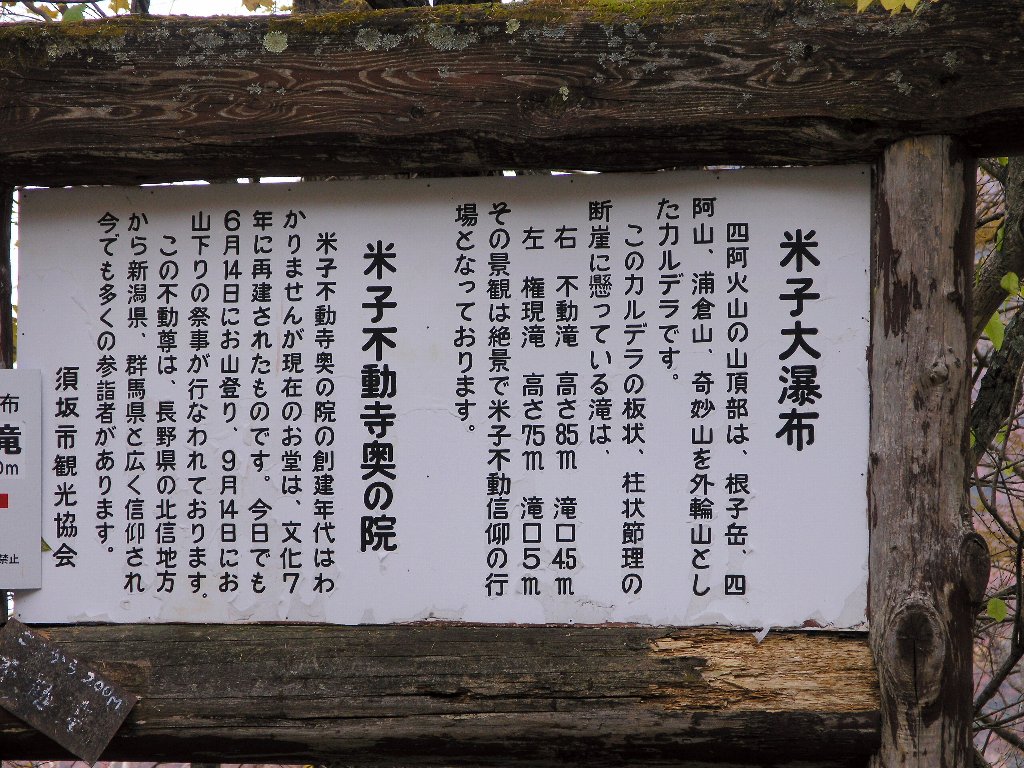 米子大瀑布
四阿火山の山頂部は、根子岳、四
阿山、浦倉山、奇妙山を外輪山とし
たカルデラです。
このカルデラの板状、柱状節理の
断崖に懸っている滝は、
右 不動滝 高さ85m 滝口4.5m
左 権現滝 高さ75m 滝口5m
その景観は絶景で米子不動信仰の行
場となっております。
米子不動寺奥の院
米子不動寺奥の院の創建年代はわ
かりませんが現在のお堂は、文化7
年に再建されたものです。今日でも
6月14日にお山登り、9月14日にお
山下りの祭事が行なわれております。
この不動尊は、長野県の北信地方
から新潟県、群馬県と広く信仰され
今でも多くの参詣者があります。
須坂市観光協会
布
滝
0m
禁止
から200M